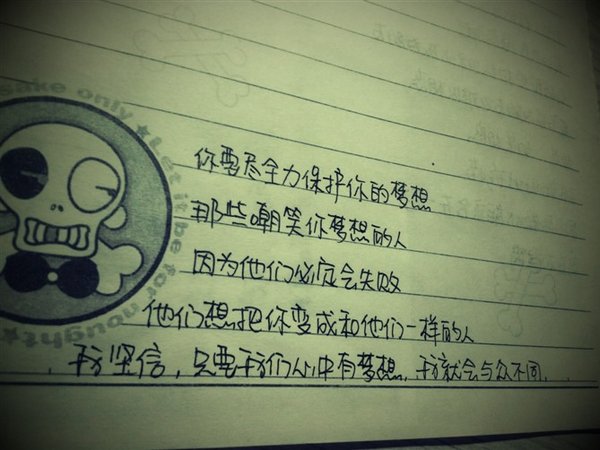 sake only ★ Let it be for nought ★
你要尽全力保护你的梦想
那些嘲笑你梦想的人
因为他们必定会失败
他们想把你变成和他们一样的人
我坚信，只要我们心中有梦想，我就会与众不同．